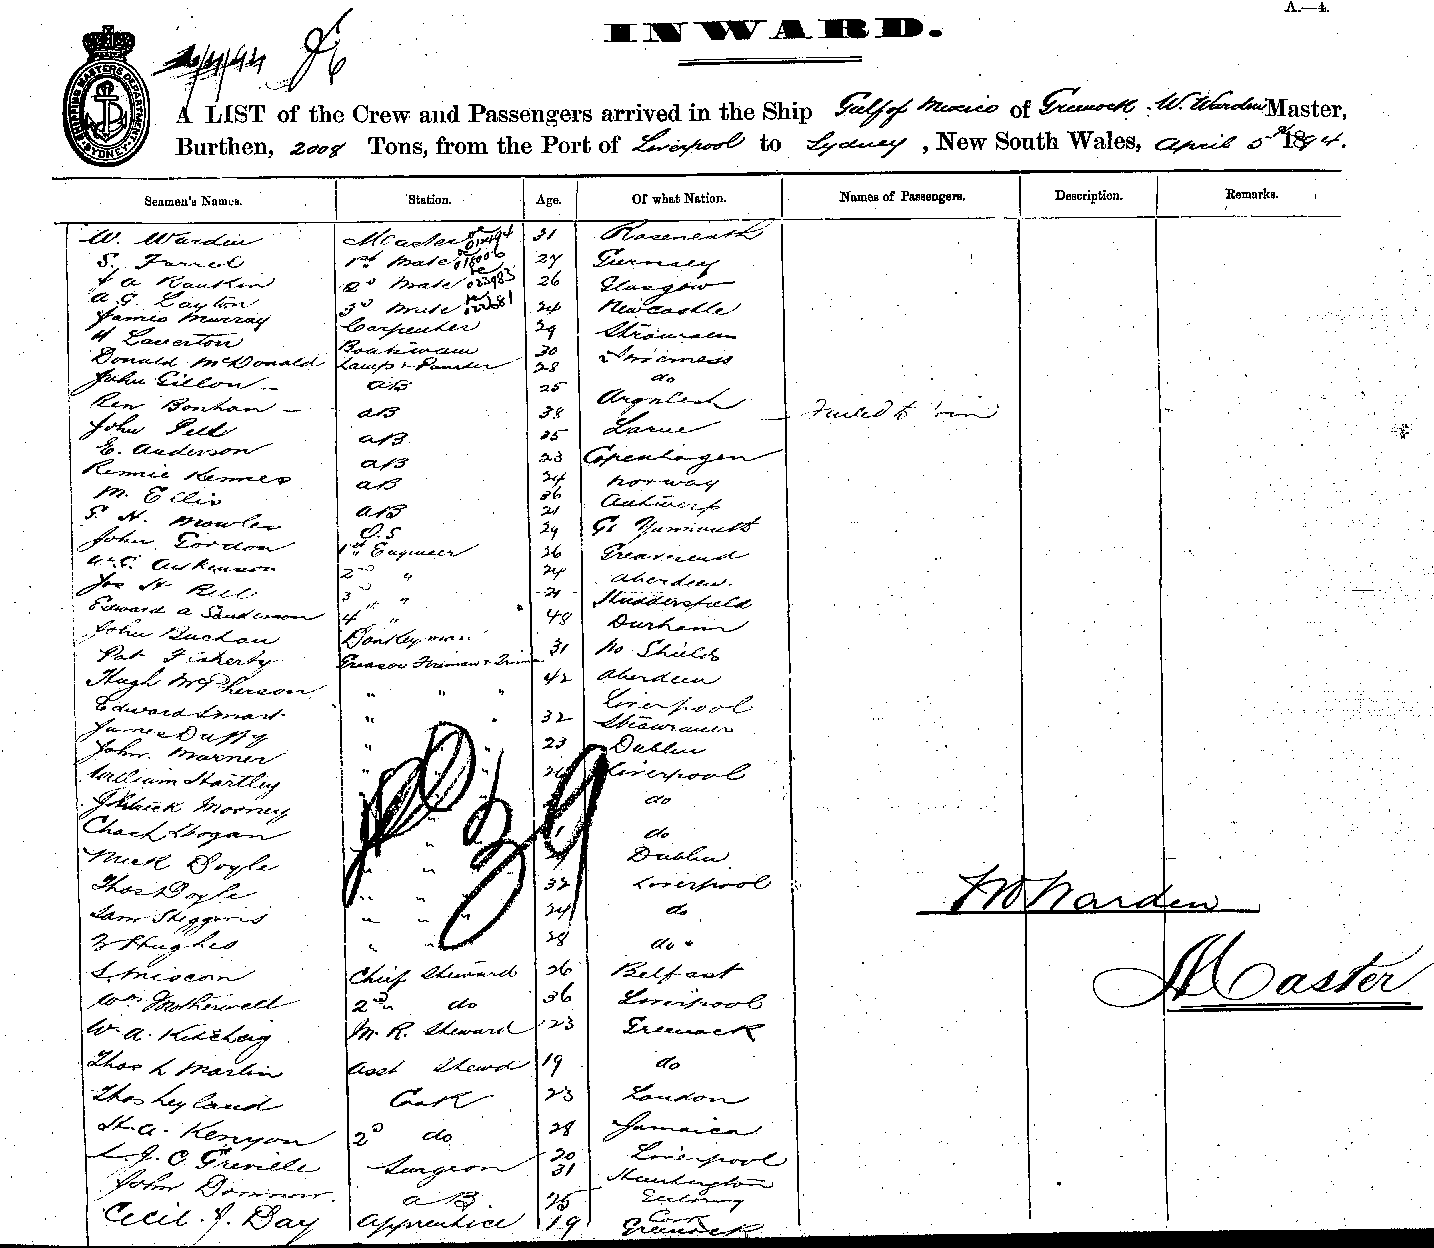 A.—4.
INWARD.
SHIPPING MASTERS DEPARTMENT SYDNEY
A LIST of the Crew and Passengers arrived in the Ship Gulf of Mexico of Greenock, W. Warden Master,
Burthen, 2008 Tons, from the Port of Liverpool to Sydney, New South Wales, April 5th 1894.
Seamen's Names. Station. Age. Of what Nation. Names of Passengers. Description. Remarks.
W. Warden Master 31 Roseneath
S. 1st Mate 27 Guernsey
J A Rankin 2d Mate 26 Glasgow
A G. Layton 3d Mate 24 Newcastle
James Murray Carpenter 29 Stranraer
H Laverton Boatswain 30 Inverness
Donald McDonald Lamp 28 do
John Gillon AB 25
Ken Bonhan AB 38 Larne Failed to join
John Pell AB 35
E. Anderson AB 23 Copenhagen
Rennie Kennes AB 24 Norway
M. Ellis AB 36 Antwerp
S. H. Mowles O.S 21 Gt Yarmouth
John Gordon 1st Engineer 29 Gravesend
Wm C. Atkinson 2nd " 26 Aberdeen
Jos H Bell 3 " 24 Huddersfield
Edward A Sanderson 4 " 21 Durham
John Buchan Donkeyman 48 No Shields
Pat Flaherty Greaser Fireman & Trim 31 Aberdeen
Hugh McPherson " " " 42 Liverpool
Edward Smart " " 32 Stranraer
James Duffy 23 Dublin
John Marner Liverpool
William Hartley do
Patrick Mooney do
Chas Hogan Dublin
Mick Doyle " 32 Liverpool
Thos Doyle " " 24 do
Sam Higgins " " 28 do
Hughes " 26 Belfast
Chief Steward 36 Liverpool
Wm Motherwell 2nd do 23 Greenock
W. A. Kitching M. R. Steward
Thos L Martin Asst Stewd 19 do
Thos Leyland Cook 23 London
H. A. Kenyon 2d do 28 Jamaica
L J. C Greville Surgeon 20 Liverpool
31 Huntington
John AB 25
Cecil J. Day Apprentice 19 Greenock
P 39
W Warden
Master